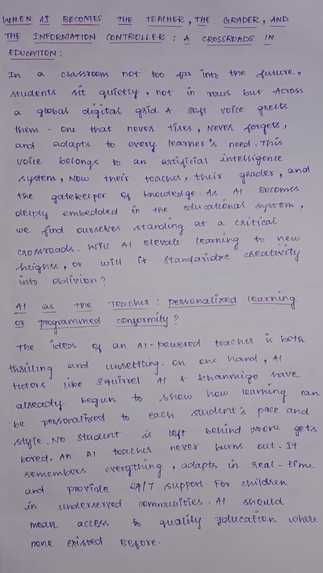 WHEN AI BECOMES THE TEACHER, THE GRADER, AND
THE INFORMATION CONTROLLER : A CROSSROADS IN
EDUCATION :
In a classroom not too far into the future,
students sit quietly, not in rows but across
a global digital grid. A soft voice greets
them - one that never tires, never forgets,
and adapts to every learner's need. This
voice belongs to an artificial intelligence
system, Now their teacher, their grader, and
the gatekeeper of knowledge. As AI becomes
deeply embedded in the educational system,
we find ourselves standing at a critical
crossroads. Will AI elevate learning to new
heights, or will it standardize creativity
into oblivion?
AI as the Teacher : personalized learning
or programmed conformity?
The idea of an AI-powered teacher is both
thrilling and unsettling. On one hand, AI
tutors like Squirrel AI & Khanmigo have
already begun to show how learning can
be personalised to each student's pace and
style. No student is left behind none gets
bored. An AI teacher never burns out. It
remembers everything, adapts in real-time
and provide 24/7 support for children
in underserved communities. AI should
mean access to quality education where
none existed before.